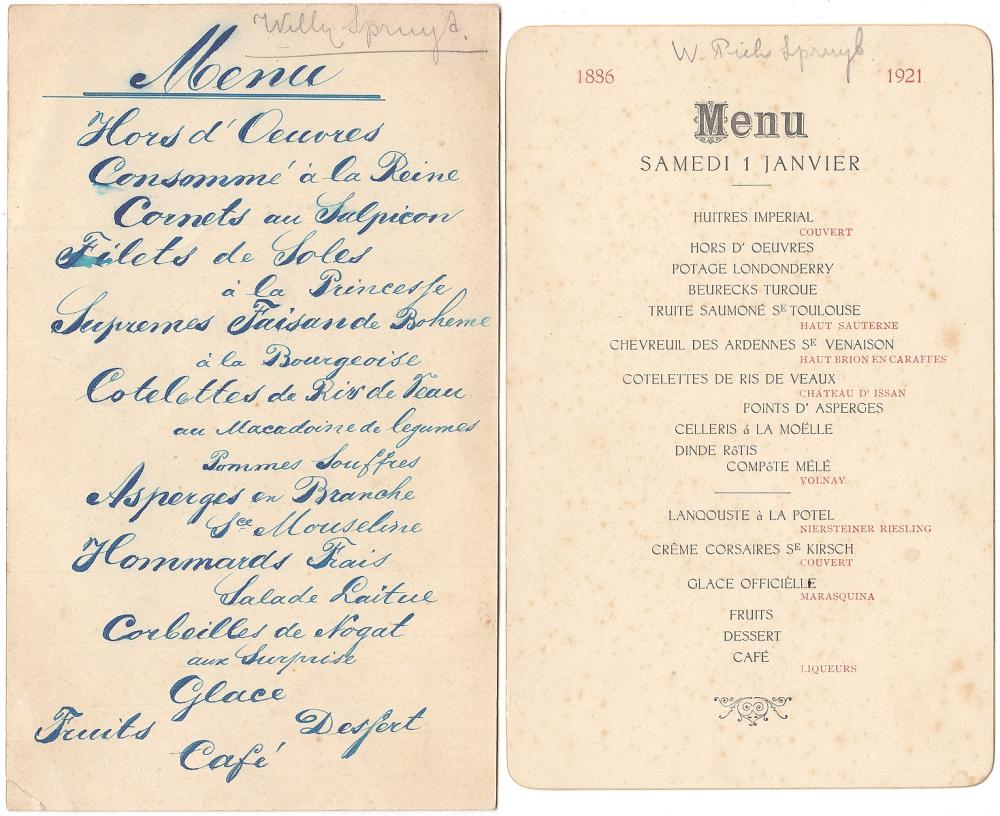 Willy Spruyt.
Menu
Hors d'Oeuvres
Consommé à la Reine
Cornets au Salpicon
Filets de Soles
à la Princesse
Supremes Faisan de Boheme
à la Bourgeoise
Cotelettes de Ris de Veau
au Macadoine de legumes
Pommes Souffres
Asperges en Branche
Sce Mouseline
Hommards Frais
Salade Laitue
Corbeilles de Nogat
aux Surprise
Glace
Fruits Dessert
Café
W. Spruyt
1886 1921
Menu
SAMEDI 1 JANVIER
HUITRES IMPERIAL
COUVERT
HORS D' OEUVRES
POTAGE LONDONDERRY
BEURECKS TURQUE
TRUITE SAUMONÉ SE TOULOUSE
HAUT SAUTERNE
CHEVREUIL DES ARDENNES SE VENAISON
HAUT BRION EN CARAFFES
COTELETTES DE RIS DE VEAUX
CHATEAU D' ISSAN
POINTS D' ASPERGES
CELLERIS á LA MOËLLE
DINDE RôTIS
COMPôTE MÉLÉ
VOLNAY
LANQOUSTE à LA POTEL
NIERSTEINER RIESLING
CRÊME CORSAIRES SE KIRSCH
COUVERT
GLACE OFFICIËLLE
MARASQUINA
FRUITS
DESSERT
CAFÉ
LIQUEURS